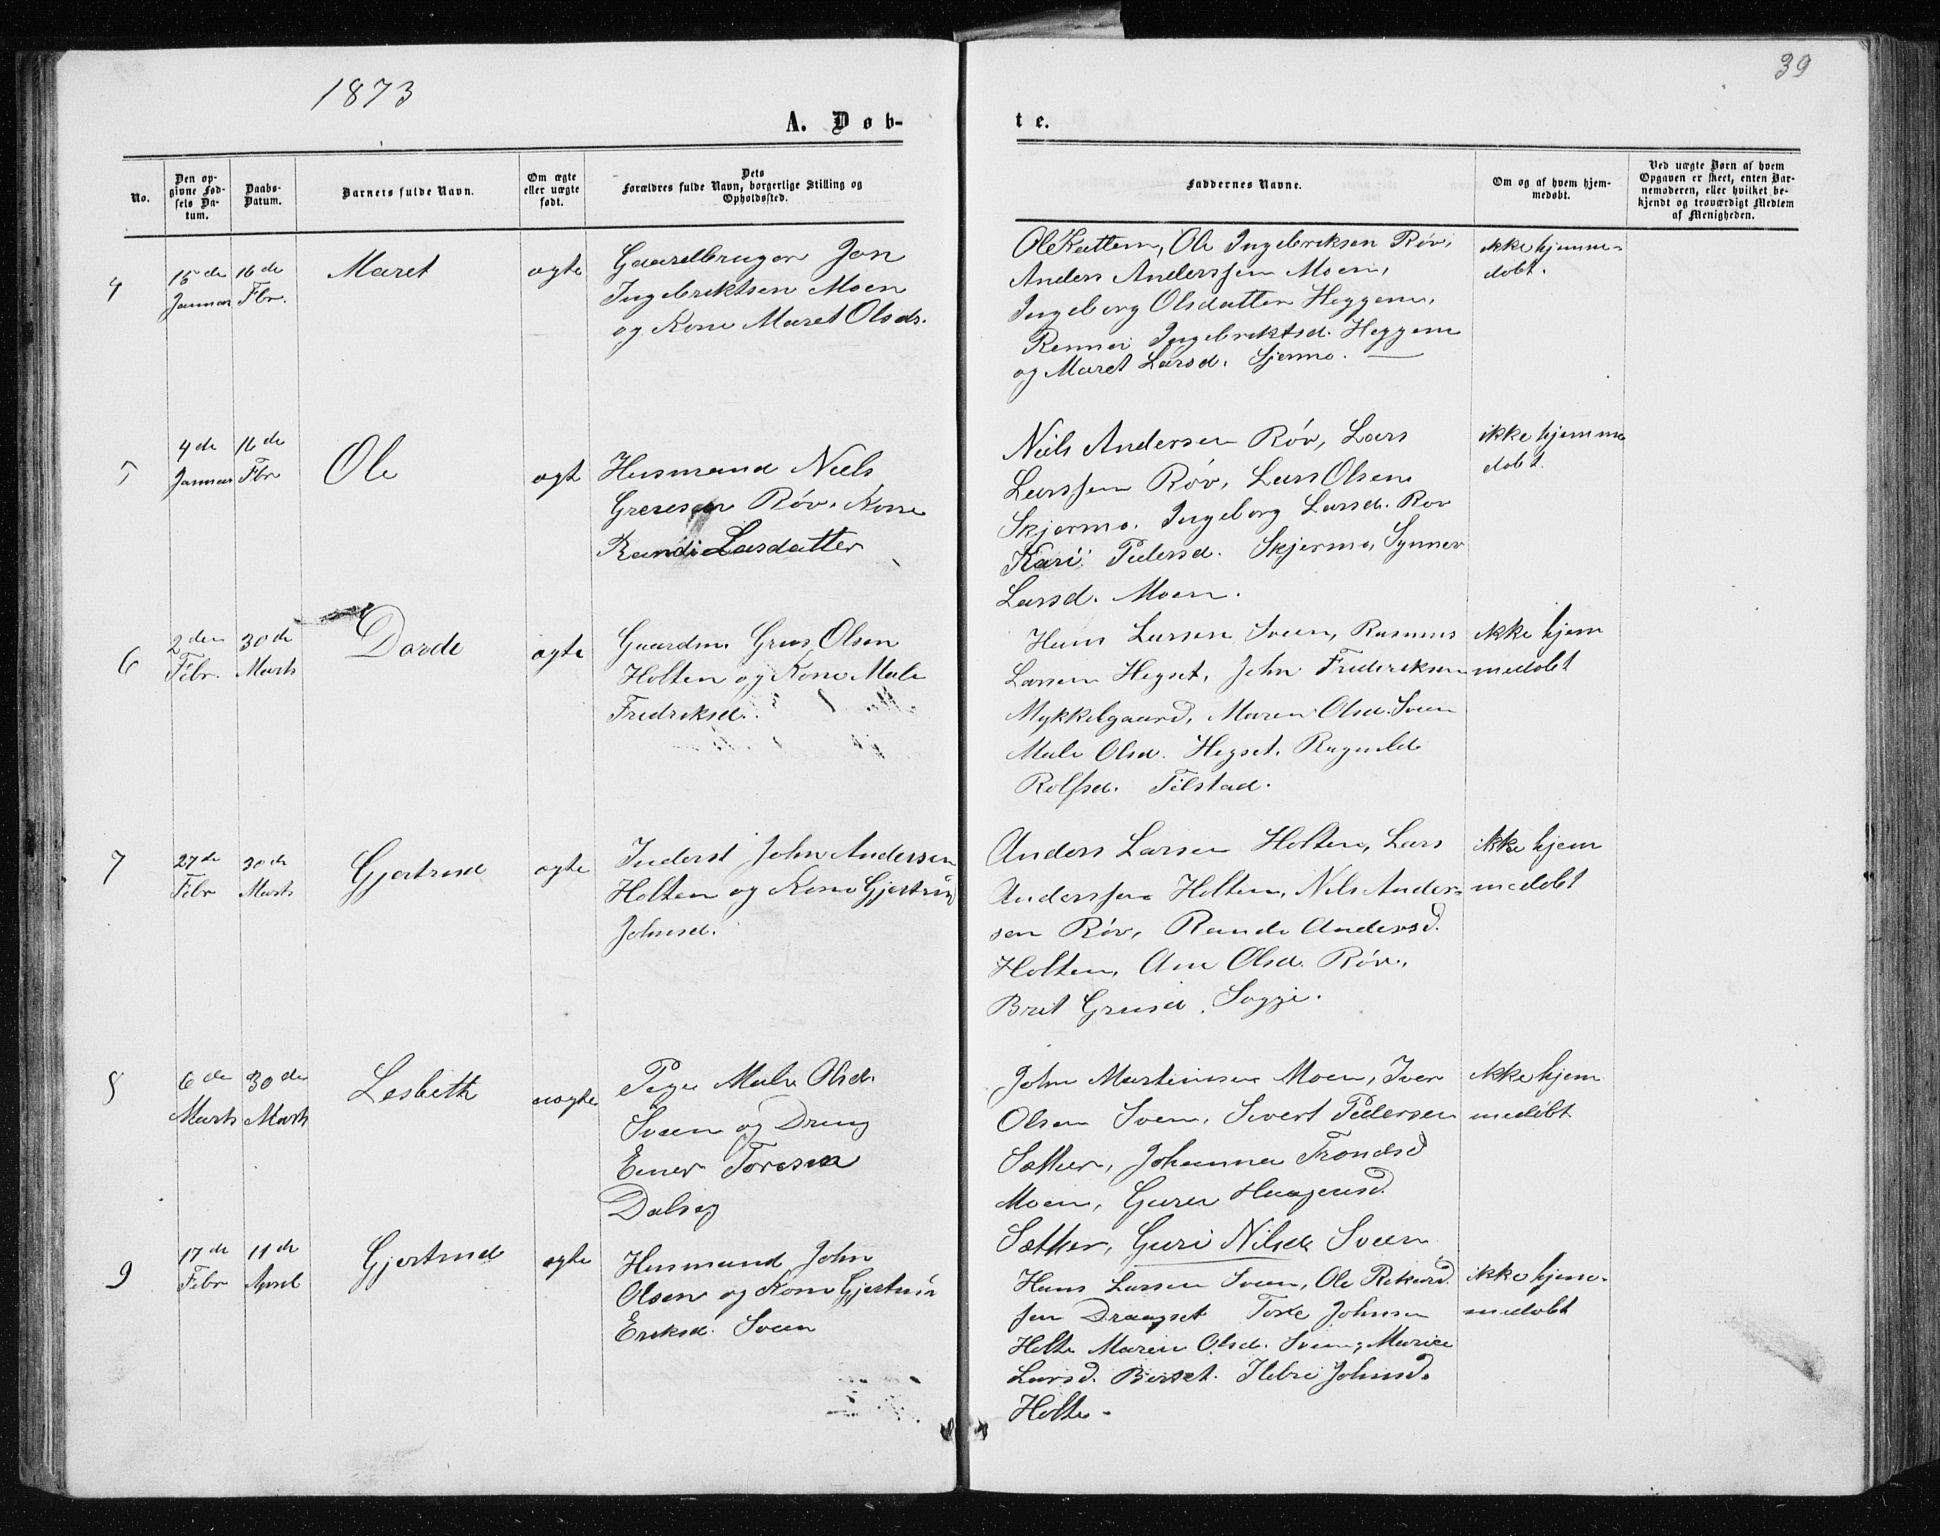 1873
39
A. Døb-
te.
No.
Den op-
givne Fød-
sels Da-
tum.
Daabs-
Datum.
Barnets fulde Navn.
Om ægte
eller uægte
født.
Dets
Forældres fulde Navn, borgerlige Stilling og
Opholdssted.
Faddernes Navne.
Om og af hvem hjem-
medøbt.
Ved uægte Børn af hvem
Opgaven er skeet, enten Bar-
nemoderen, eller hvilket be-
kjendt og troværdigt Medlem
af Menigheden.
4
15de
Januar
16de
Fbr.
Maret
ægte
Gaardbruger Jon
Ingebriktsen Moen
og Kone Maret Olsdr.
Ole Kattem, Ole Ingebriksen Røv,
Anders Anderssen Moen,
Ingeborg Olsdatter Heggem,
Ingebriktsd. Heggem
og Maret Larsd. Sjermo.
ikke hjemme-
døbt.
5
4de
Januar
16de
Fbr
Ole
ægt
Husmand Niels
Røv, Kone
Randi Lasdatter
Niels Andersen Røv, Lars
Larssen Røv, Lars Olsen
Skjermo, Ingeborg Larsd. Rov
Kari Pedersd. Skjermo, Synnev
Larsd. Moen.
ikke hjemme
døbt.
6
2den
Febr.
30de
Marts
Dorde
ægte
Gaardm. Grus Olsen
Holten og Kone Male
Fredriksd.
Hans Larsen Sveen, Rasmus
Larsen Hegset, John Frederiksen
Mykkelgaard, Maren Olsd. Sveen
Male Olsd. Hegset, Ragnild
Rolfsd. Tilstad.
ikke hjem
medøbt
7
27de
Febr
30de
Marts
Gjertrud
ægte
Inderst John Andersen
Holten og Kone Gjertrud
Johnsd.
Anders Larsen Holten, Lars
Anderssen Holten, Nils Ander-
sen Røv, Rande Andersd.
Holten, Ane Olsd. Røv,
Brit Grusd. Sogge.
ikke hjem
medøbt
8
6de
Marts
30de
Marts
Lesbeth
uægte
Pige Male Olsd.
Sveen og Dreng
Ener Toresen
Dalseg
John Martinusen Moen, Iver
Olsen Sveen, Sivert Pedersen
Sæther, Johanna Trondsd
Moen, Guru Haagensd.
Sæther, Guri Nilsd. Sveen
ikke hjem
medøbt
9
17de
Febr
11de
April
Gjertrud
ægte
Husmand John
Olsen og Kone Gjertrud
Eriksd. Sveen
Hans Larsen Sveen, Ole Rikard
sen Draagset Tore Johnsen
Holte Maren Olsd. Sveen, Marie
Larsd. Berset. Ildri Johnsd.
Holte.
ikke hjem-
medøbt